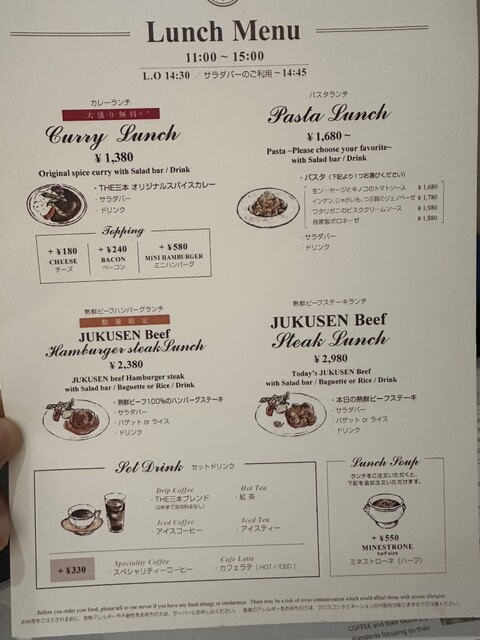 Lunch Menu
11:00～15:00
L.O 14:30 ／サラダバーのご利用～14:45
カレーランチ
大盛り無料
Curry Lunch
¥1,380
Original spice curry with Salad bar / Drink
・THE三本 オリジナルスパイスカレー
・サラダバー
・ドリンク
Topping
+¥180
CHEESE
チーズ
+¥240
BACON
ベーコン
+¥580
MINI HAMBURGER
ミニハンバーグ
パスタランチ
Pasta Lunch
¥1,680～
Pasta ~Please choose your favorite~
with Salad bar / Drink
・パスタ（下記より1つお選びください）
生ソーセージとキノコのトマトソース ¥1,680
インゲン、じゃがいも、つぶ貝のジェノベーゼ ¥1,780
ワタリガニのビスククリームソース ¥1,980
自家製ボロネーゼ ¥1,880
・サラダバー
・ドリンク
熟鮮ビーフハンバーグランチ
数量限定
JUKUSEN Beef
Hamburger steak Lunch
¥2,380
JUKUSEN beef Hamburger steak
with Salad bar / Baguette or Rice / Drink
・熟鮮ビーフ100%のハンバーグステーキ
・サラダバー
・バゲット or ライス
・ドリンク
熟鮮ビーフステーキランチ
JUKUSEN Beef
Steak Lunch
¥2,980
Today's JUKUSEN Beef
with Salad bar / Baguette or Rice / Drink
・本日の熟鮮ビーフステーキ
・サラダバー
・バゲット or ライス
・ドリンク
Set Drink セットドリンク
Drip Coffee
・THE三本ブレンド
Hot Tea
・紅茶
Iced Coffee
・アイスコーヒー
Iced Tea
・アイスティー
+¥330
Speciality Coffee
・スペシャリティーコーヒー
Cafe Latte
・カフェラテ [HOT / ICED]
Lunch Soup
ランチをご注文いただくと、
下記を追加注文いただけます。
+¥550
MINESTRONE
half size
ミネストローネ（ハーフ）
Before you order your food, please tell to our server if you have any food allergy or intolerance. There may be a risk of cross contamination which could affect those with severe allergies.
COFFEE and their bean
standards focusing on their